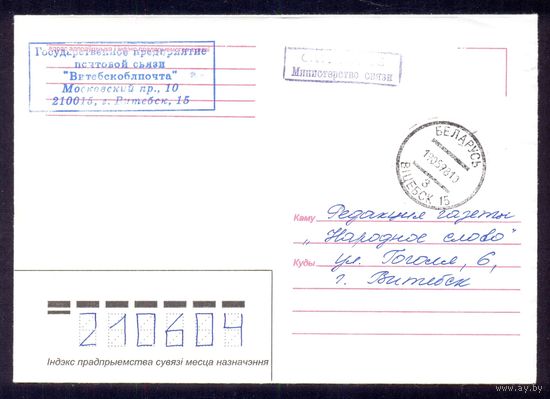 Государственное предприятие
почтовой связи
"Витебскоблпочта"
Московский пр., 10
210015, г. Витебск, 15
Министерство связи
БЕЛАРУСЬ
3
ВІЦЕБСК 15
Каму Редакция газеты
„Народное слово"
Куды ул. Гоголя, 6,
г. Витебск
210604
Індэкс прадпрыемства сувязі месца назначэння
www.ay.by